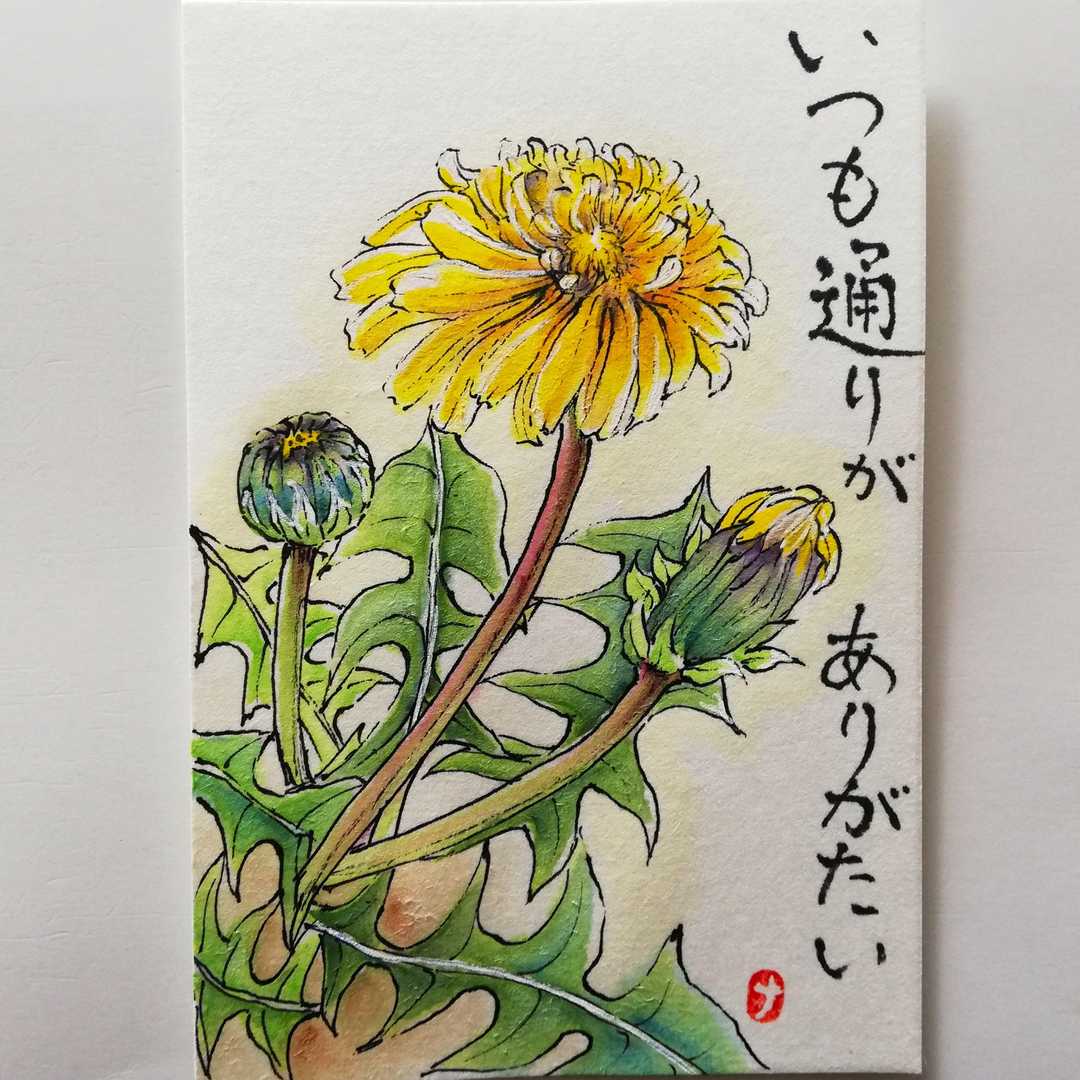 いつも通りが
ありがたい
ナ